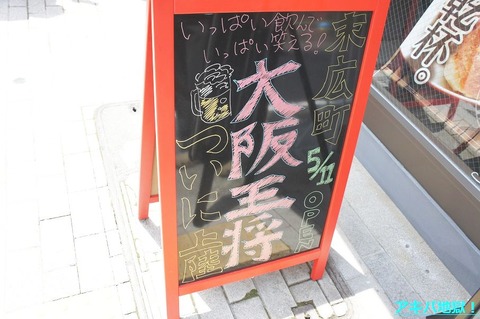 いっぱい飲んで
いっぱい笑える!
末広町
5/11 OPEN
大阪王将
ついに上陸
乾杯。
アキバ地獄!